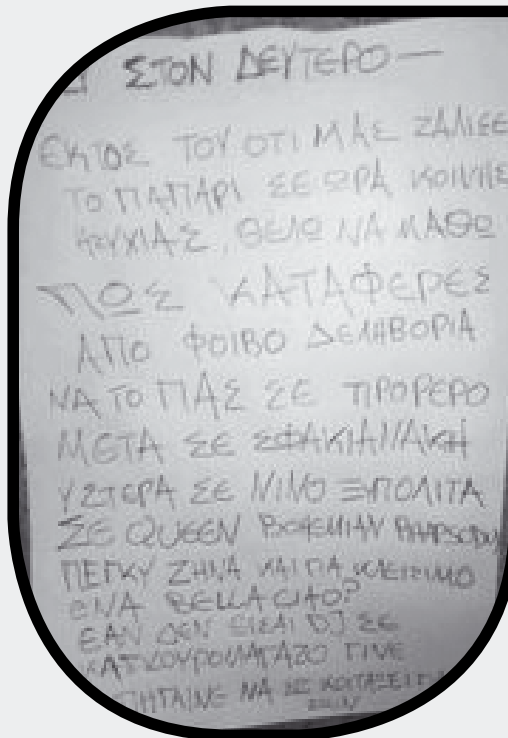 ΣΤΟΝ ΔΕΥΤΕΡΟ —
ΕΚΤΟΣ ΤΟΥ ΟΤΙ ΜΑΣ ΖΑΛΙΣΕΣ
ΤΟ ΠΑΠΑΡΙ ΣΕ ΩΡΑ ΚΟΙΝΗΣ
ΗΣΥΧΙΑΣ, ΘΕΛΩ ΝΑ ΜΑΘΩ
ΠΩΣ ΚΑΤΑΦΕΡΕΣ
ΑΠΟ ΦΟΙΒΟ ΔΕΛΗΒΟΡΙΑ
ΝΑ ΤΟ ΠΑΣ ΣΕ
ΜΕΤΑ ΣΕ ΣΦΑΚΙΑΝΑΚΗ
ΥΣΤΕΡΑ ΣΕ ΝΙΝΟ
ΣΕ QUEEN BOHEMIAN RHAPSODY
ΠΕΓΚΥ ΖΗΝΑ ΚΑΙ ΓΙΑ ΚΛΕΙΣΙΜΟ
ΕΝΑ BELLA CIAO?
ΕΑΝ ΔΕΝ ΕΙΣΑΙ DJ ΣΕ
ΓΙΝΕ
ΠΗΓΑΙΝΕ ΝΑ ΣΕ ΚΟΙΤΑΞΕΙ